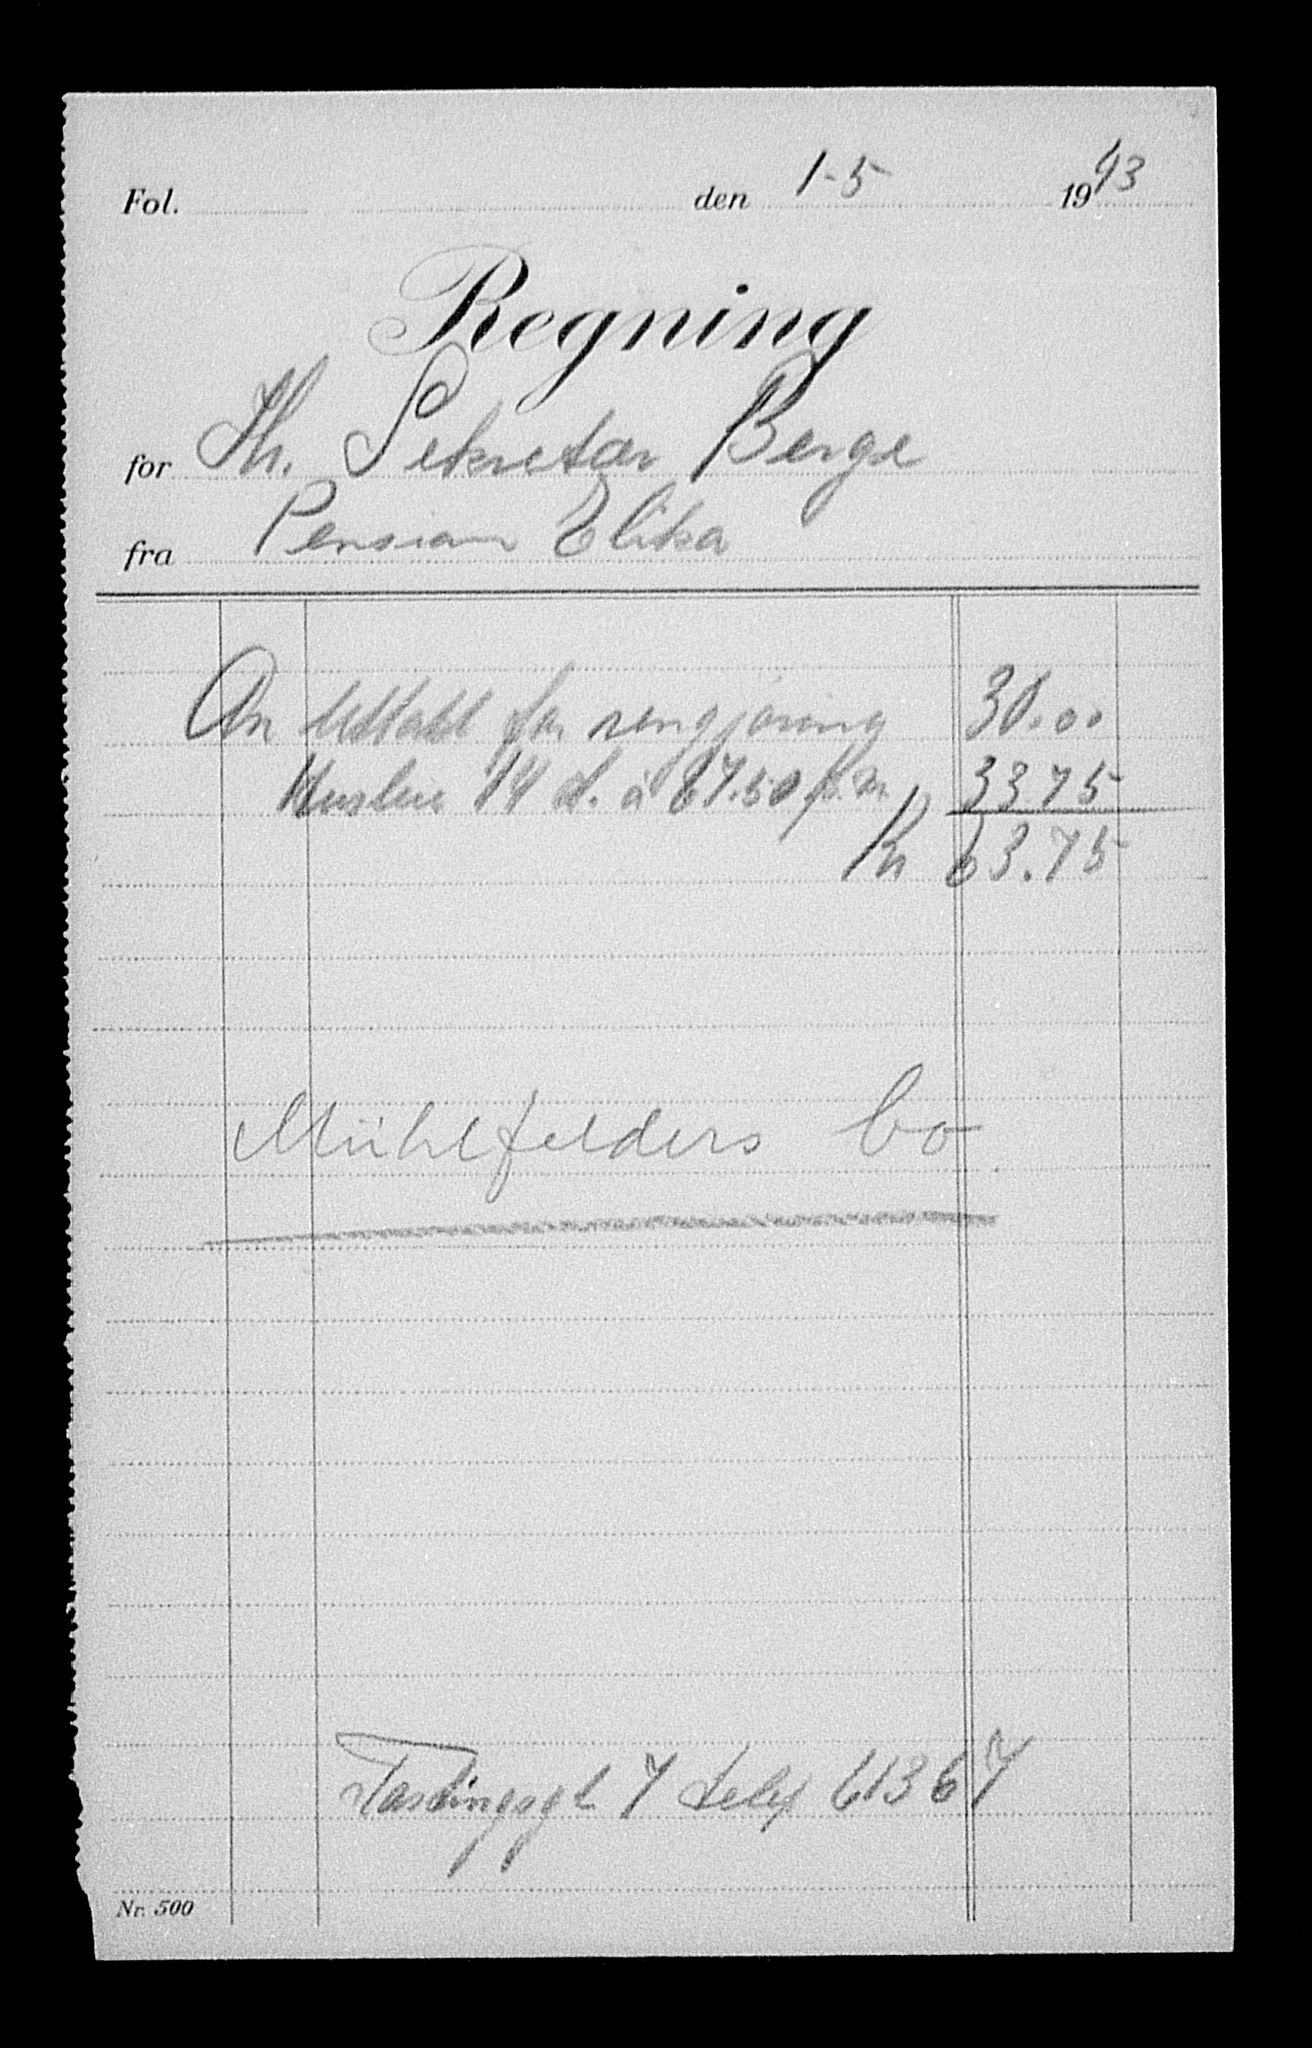 Fol. den 1-5 1943
Regning
for Hr. Sekretær Berge
fra Pension Elika
An betalt for rengjøring 30.00
Husleie 14 d. à 67.50 p.m. 33 75
Kr 63.75
Mühlfelders bo
gt 7 telf 61367
Nr. 500